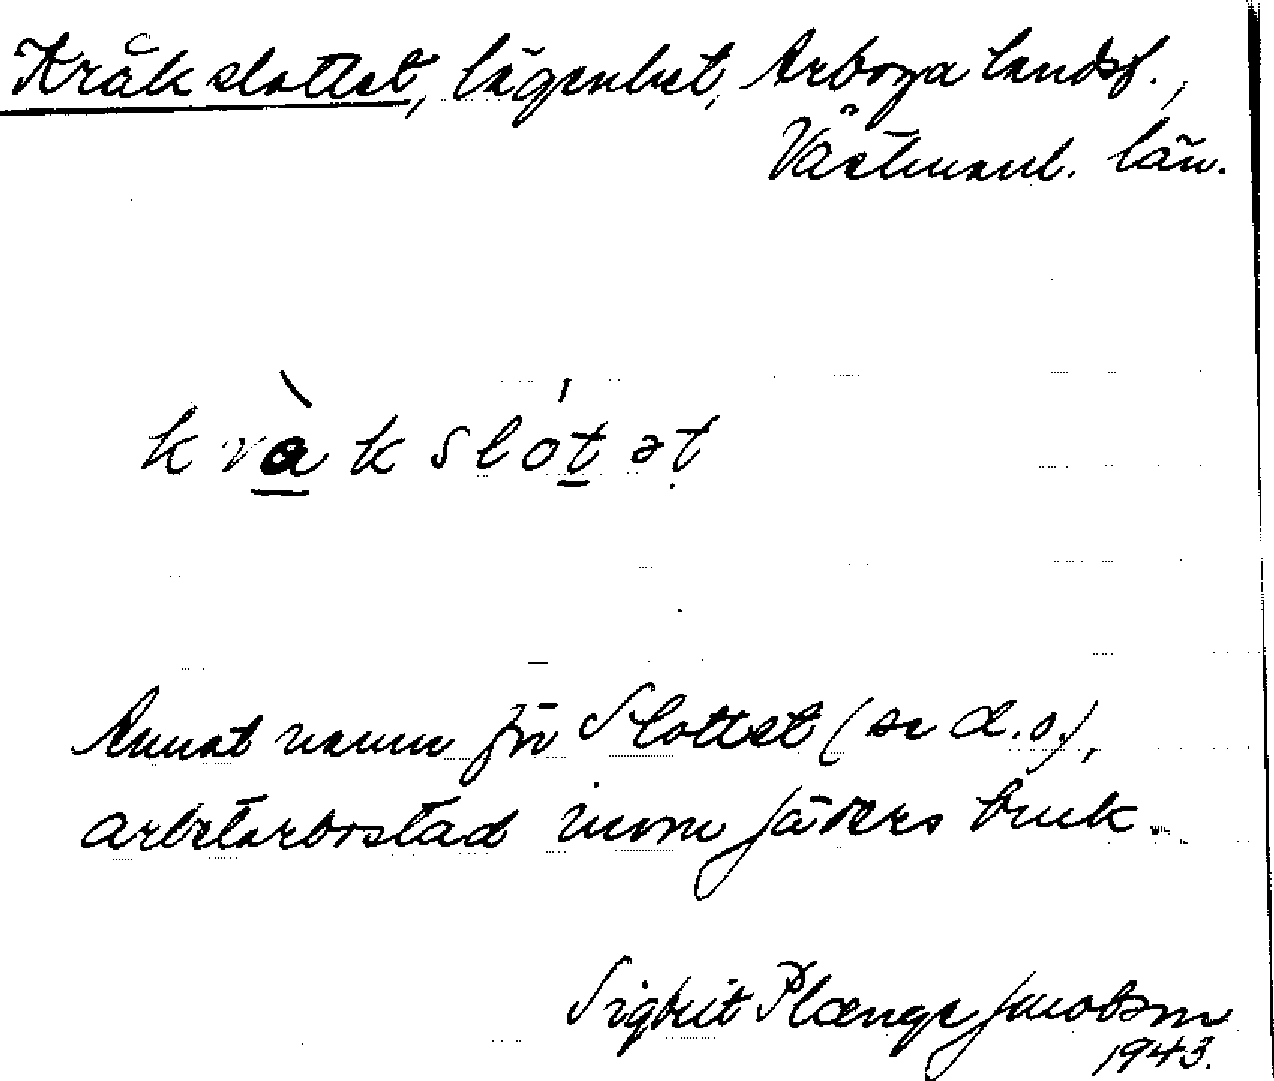 Kråkslottet, lägenhet, Arboga landsf.,
Västmanl. län.
kràkslótət
Annat namn för Slottet (se d.o.),
arbetarbostad inom Jäders bruk.
Sigbrit Plænge Jacobson
1943.